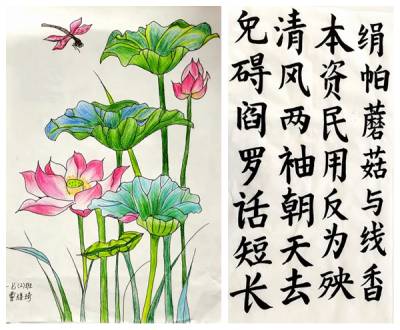 绢帕蘑菇与线香
本资民用反为殃
清风两袖朝天去
免碍阎罗话短长